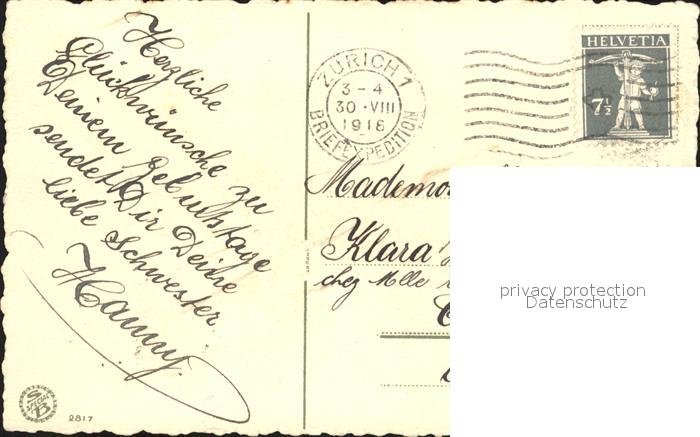 Herzliche
Glückwünsche zu
Deinem Geburtstage
sendet Dir Deine
liebe Schwester
Hanny.
ZÜRICH 1
3-4
30·VIII
1918
BRIEFEXPEDITION
HELVETIA
7½
Mademo
Klara
chez Mlle
privacy protection
Datenschutz
S
SPECIAL
B
2817